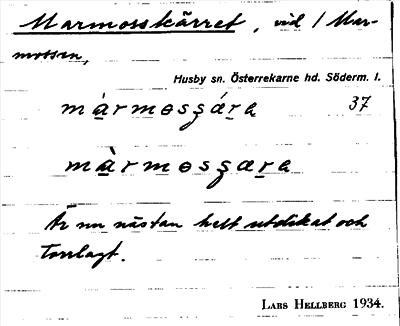 Marmosskärret, vid / Mar-
mossen,
Husby sn. Österrekarne hd. Söderm. l.
màrmosʂǽra 37
màrmɵsʂæra
Är nu nästan helt utdikat och
torrlagt.
LARS HELLBERG 1934.